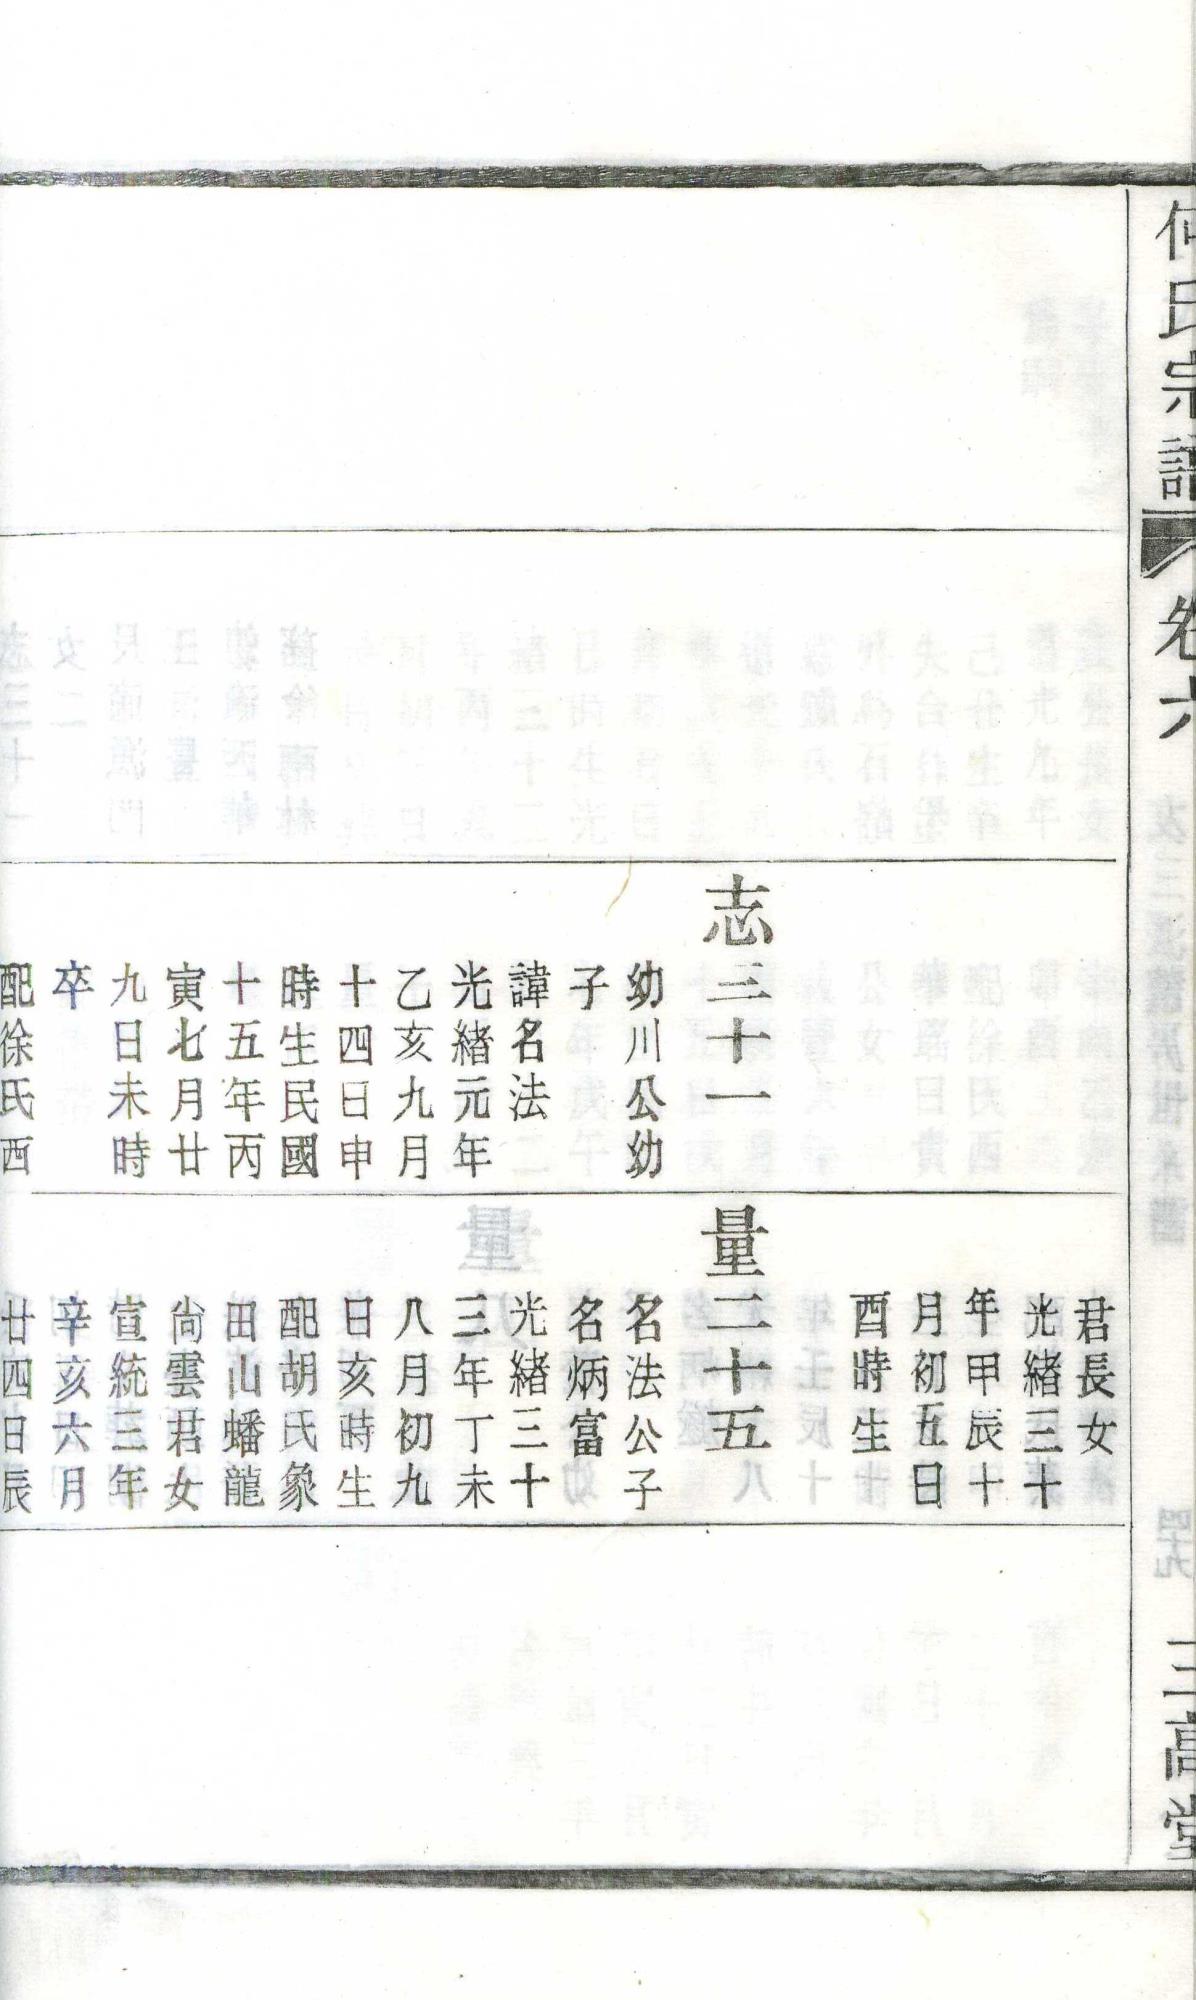 何氏宗譜
卷六
三高堂
志三十一
幼川公幼
子
諱名法
光緒元年
乙亥九月
十四日申
時生民國
十五年丙
寅七月廿
九日未時
卒
配徐氏西
君長女
光緒三十
年甲辰十
月初五日
酉時生
量二十五
名法公子
名炳富
光緒三十
三年丁未
八月初九
日亥時生
配胡氏象
田山蟠龍
尙雲君女
宣統三年
辛亥六月
廿四日辰